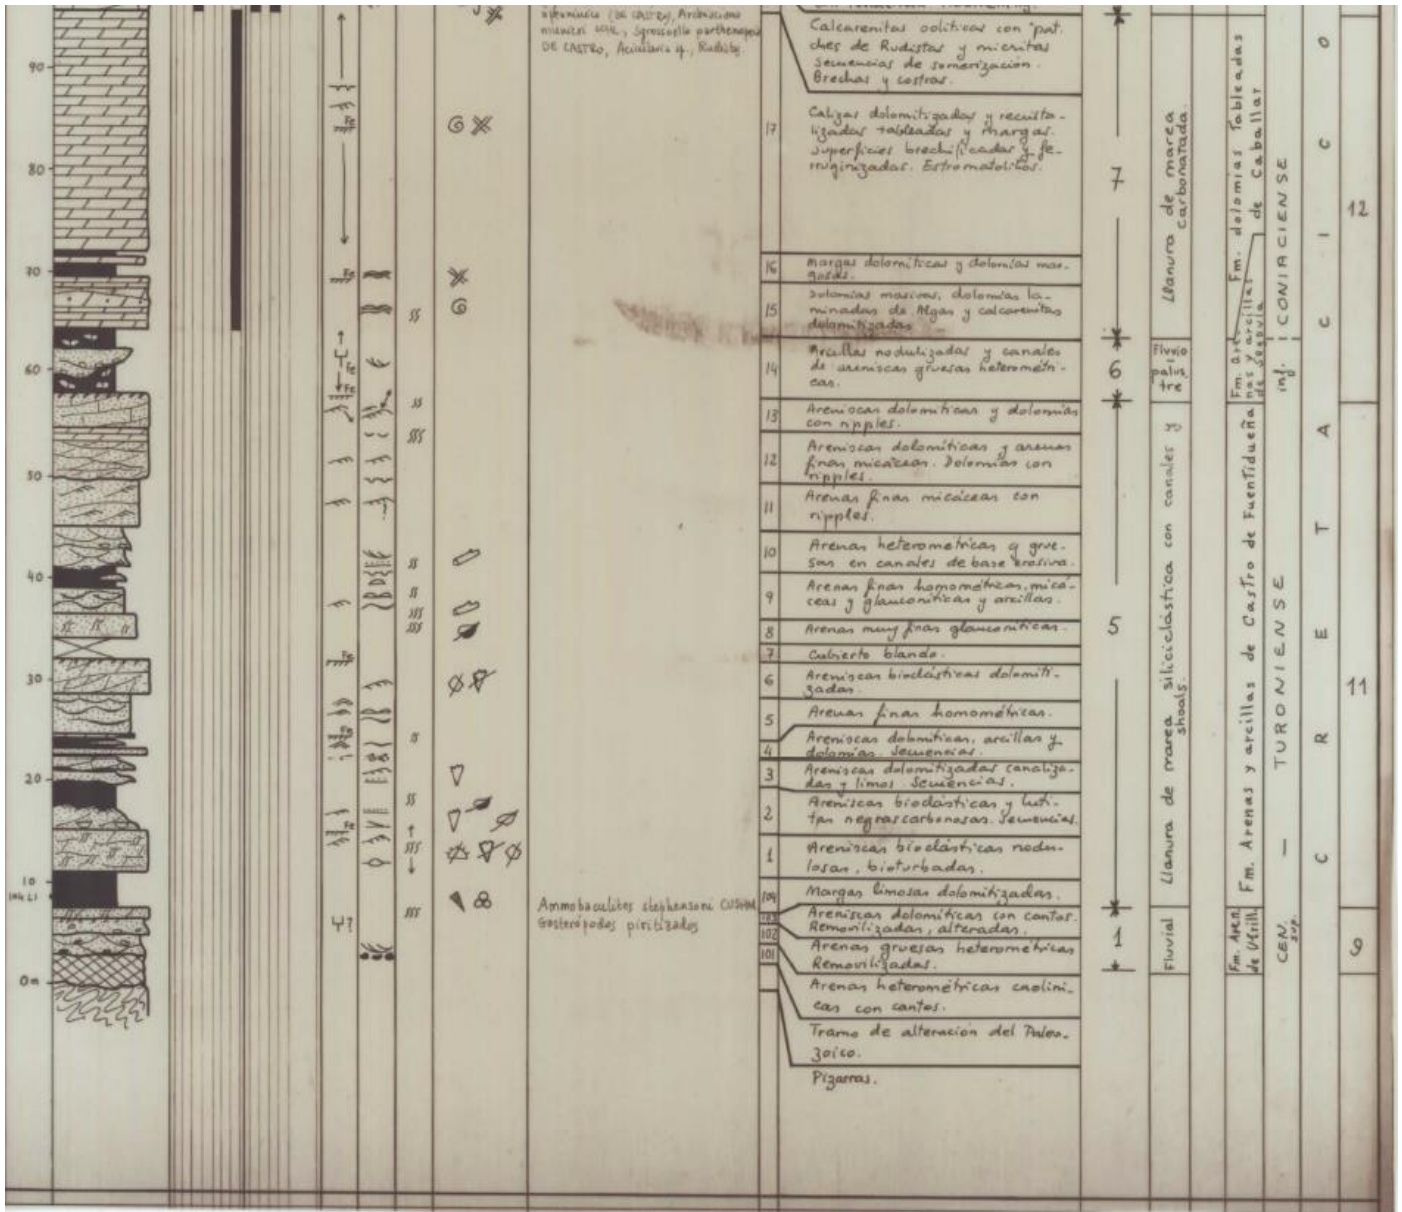 DE CASTRO, Acicularia sp., Rudistas.
Calcarenitas ooliticas con "pat.
ches de Rudistas y micritas
secuencias de somerización.
Brechas y costras.
17
Calizas dolomitizadas y recrista-
lizadas tableadas y margas.
superficies brechificadas y fe-
rruginizadas. Estromatolitos.
16
Margas dolomíticas y dolomías mar-
gosas.
15
Dolomías masivas, dolomías la-
minadas de Algas y calcarenitas
dolomitizadas
14
Arcillas nodulizadas y canales
de areniscas gruesas heterométri-
cas.
13
Areniscas dolomíticas y dolomías
con ripples.
12
Areniscas dolomíticas y arenas
finas micáceas. Dolomías con
ripples.
11
Arenas finas micáceas con
ripples.
10
Arenas heterometricas y grue-
sas en canales de base erosiva.
9
Arenas finas homométricas, micá-
ceas y glauconíticas y arcillas.
8
Arenas muy finas glauconíticas.
7
Cubierto blando.
6
Areniscas bioclásticas dolomiti-
zadas.
5
Arenas finas homométricas.
4
Areniscas dolomíticas, arcillas y
dolomías. Secuencias.
3
Areniscas dolomitizadas canaliza-
das y limos. Secuencias.
2
Areniscas bioclásticas y luti-
tas negras carbonosas. Secuencias.
1
Areniscas bioclásticas nodu-
losas, bioturbadas.
104
Margas limosas dolomitizadas.
103
Areniscas dolomíticas con cantos.
Removilizadas, alteradas.
102
Arenas gruesas heterométricas
Removilizadas.
101
Arenas heterométricas caolini-
cas con cantos.
Tramo de alteración del Paleo-
zoico.
Pizarras.
Ammobaculites stephensoni CUSHM.
Gasterópodos piritizados
90
80
70
60
50
40
30
20
10
0m
Fe
Fe
Fe
Fe
Fe
Fe
Y?
7
6
5
1
Llanura de marea
carbonatada.
Fluvio
palus.
tre
Llanura de marea siliciclástica con canales y
shoals.
Fluvial
Fm. dolomias Tableadas
de Caballar
Fm. Are-
nas y arcillas
de Segovia
Fm. Arenas y arcillas de Castro de Fuentidueña
Fm. Aren.
de Utrill.
inf. CONIACIENSE
— TURONIENSE
CEN.
sup.
CRETACICO
12
11
9